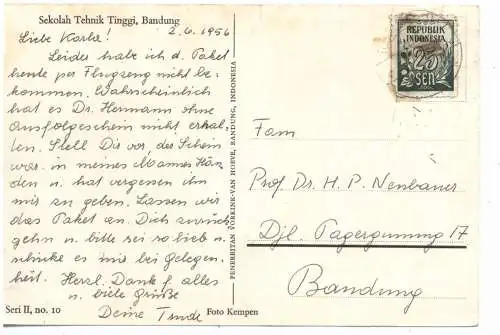 Sekolah Tehnik Tinggi, Bandung
2.6.1956
Liebe Karla!
Leider habe ich d. Paket
heute per Flugzeug nicht be-
kommen. Wahrscheinlich
hat es Dr. Hermann ohne
Ausfolgeschein nicht erhal-
ten. Stell Dir vor, der Schein
war in meines Mannes Hän
den u. hat vergessen ihn
mir zu geben. Lassen wir
das Paket an Dich zurück
gehn u. bitte sei so lieb u.
schicke es mir bei Gelegen-
heit. Herzl. Dank f. alles
u. viele Grüße
Deine Trude
Seri II, no. 10
Foto Kempen
PENERBITAN VORKINK-VAN HOEVE, BANDUNG, INDONESIA
REPUBLIK
INDONESIA
25
SEN
Fam
Prof Dr. H. P. Neubauer
Djl. Pagergunung 17
Bandung